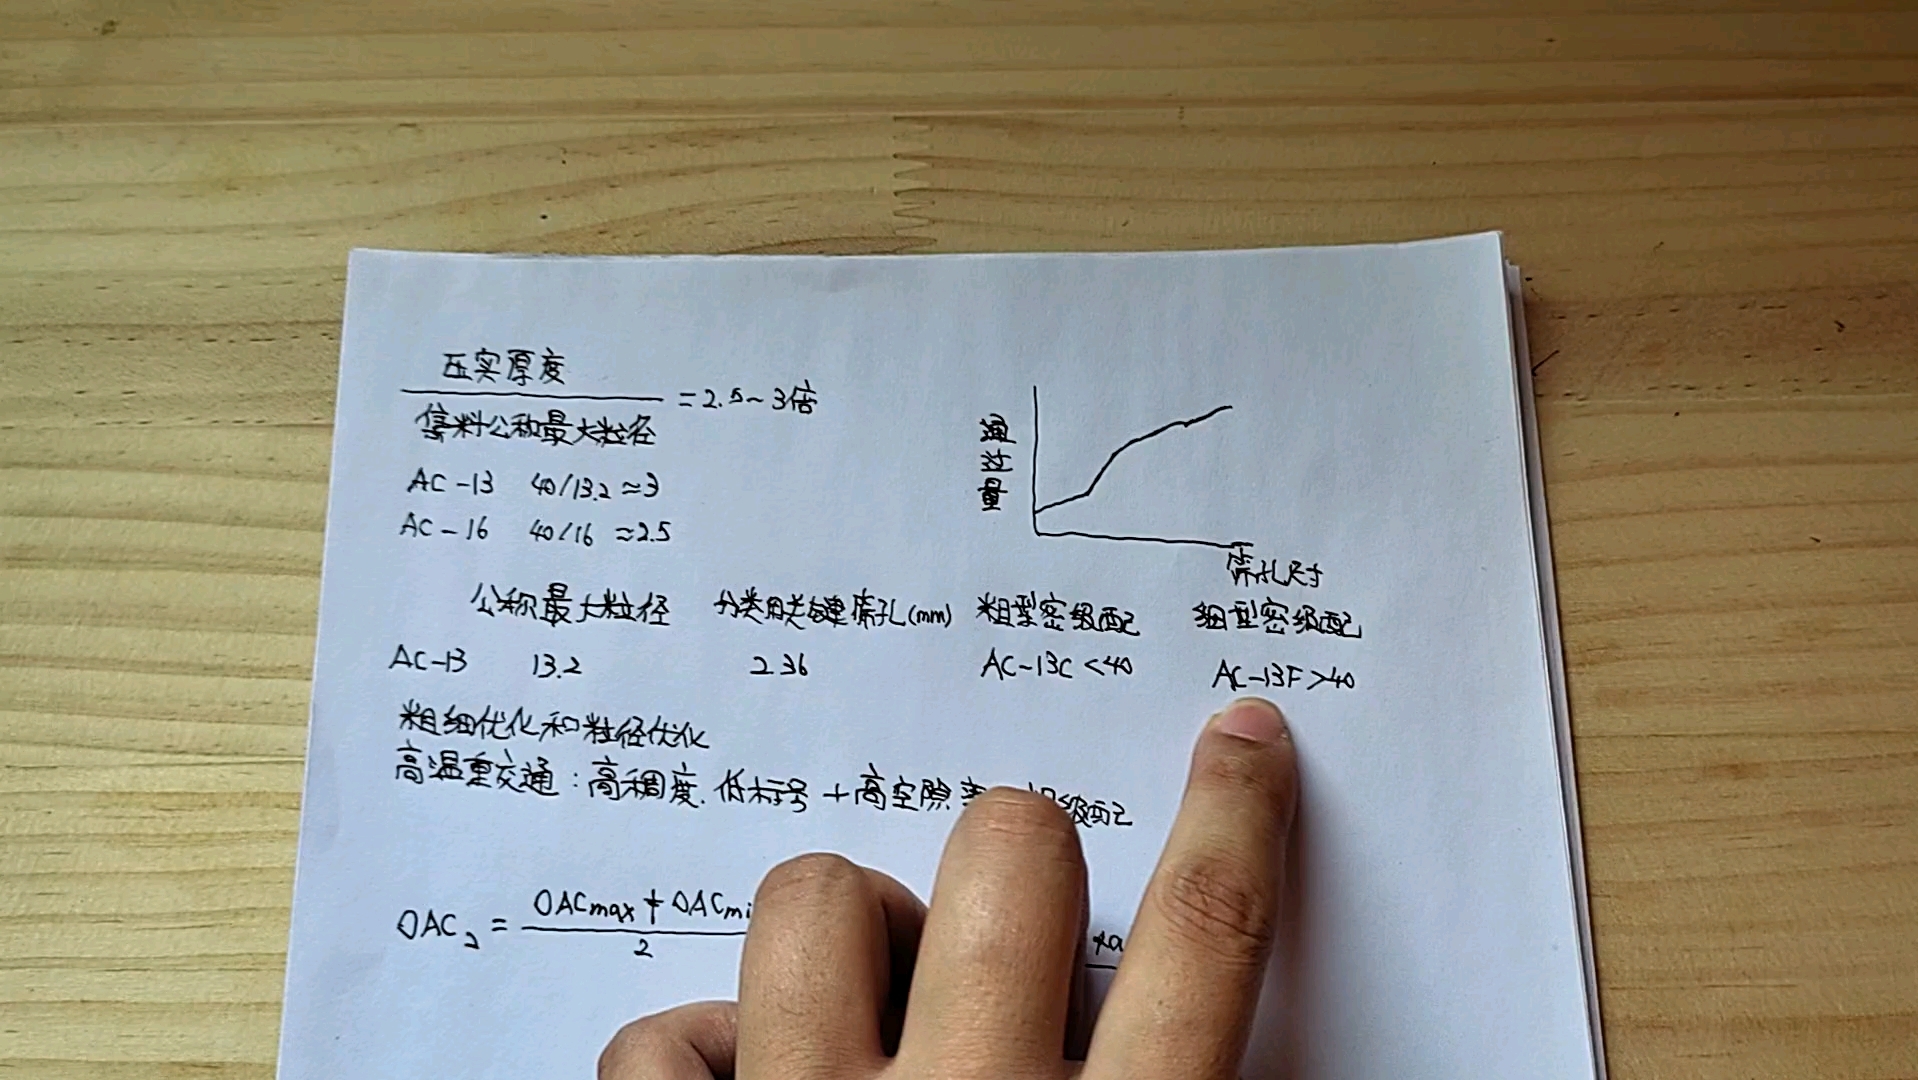 压实厚度
集料公称最大粒径
=2.5~3倍
AC-13 40/13.2≈3
AC-16 40/16≈2.5
通过量
筛孔尺寸
公称最大粒径 分类用关键筛孔(mm) 粗型密级配 细型密级配
AC-13 13.2 2.36 AC-13C<40 AC-13F>40
粗细优化和粒径优化
高温重交通:高稠度.低标号+高空隙 级配
OAC₂ = OACmax+OACmi
2